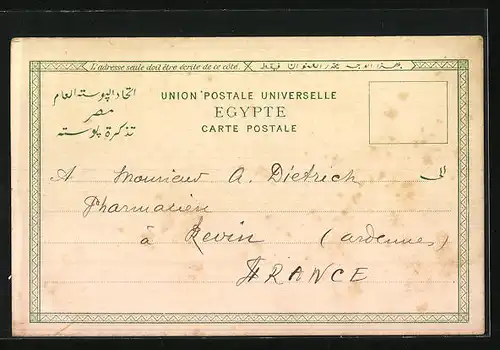 L'adresse seule doit être écrite de ce côté.
اتحاد البوسته العام
مصر
تذكرة بوسته
UNION POSTALE UNIVERSELLE
EGYPTE
CARTE POSTALE
A Monsieur A. Dietrich
الى
Pharmacien
à Revin (Ardennes)
FRANCE